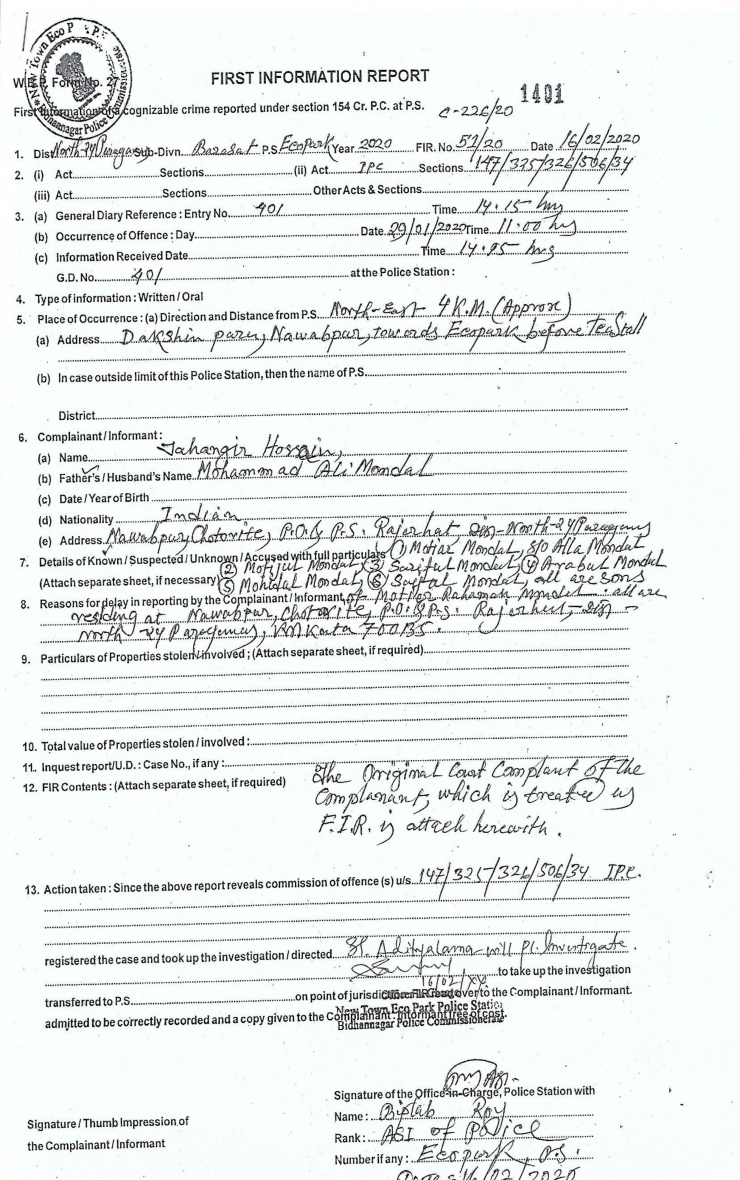 New Town Eco P.S.
Bidhannagar Police Commissionerate
W.B.P. Form No. 27
FIRST INFORMATION REPORT
1401
First Information of a cognizable crime reported under section 154 Cr. P.C. at P.S.
C-226/20
1. Dist North 24 Paraganas Sub-Divn. Barasat P.S. Ecopark Year 2020 FIR. No. 51/20 Date 16/02/2020
2. (i) Act Sections (ii) Act IPC Sections 147/325/326/506/34
(iii) Act Sections Other Acts & Sections
3. (a) General Diary Reference : Entry No. 401 Time 14.15 hrs
(b) Occurrence of Offence : Day Date 29/01/2020 Time 11.00 hrs
(c) Information Received Date Time 14.45 hrs
G.D. No. 401 at the Police Station :
4. Type of information : Written / Oral
5. Place of Occurrence : (a) Direction and Distance from P.S. North-East 4 K.M. (Approx)
(a) Address Dakshin para, Nawabpur, towards Ecopark before Tea Stall
(b) In case outside limit of this Police Station, then the name of P.S.
District
6. Complainant / Informant :
(a) Name Jahangir Hossain,
(b) Father's / Husband's Name Mohammad Ali Mondal
(c) Date / Year of Birth
(d) Nationality Indian
(e) Address Nawabpur, Chotorite, P.O. & P.S. Rajarhat, Dist-North-24 Paraganas
7. Details of Known / Suspected / Unknown / Accused with full particulars (1) Mofiar Mondal, S/O Alla Mondal
(2) Mofijul Mondal, (3) Sariful Mondal (4) Arabul Mondal
(Attach separate sheet, if necessary) (5) Mohidal Mondal, (6) Saiful Mondal, all are sons
8. Reasons for delay in reporting by the Complainant / Informant, of Motior Rahaman Mondal. all are
residing at Nawabpur, Chotorite, P.O. & P.S. Rajarhat, Dist -
North 24 Paraganas, Kolkata 700135.
9. Particulars of Properties stolen / involved ; (Attach separate sheet, if required)
10. Total value of Properties stolen / involved :
11. Inquest report / U.D. : Case No., if any :
12. FIR Contents : (Attach separate sheet, if required) The Original Court Complaint of the
Complanant, which is treated as
F.I.R. is attach herewith.
13. Action taken : Since the above report reveals commission of offence (s) u/s. 147/325/326/506/34 IPC.
registered the case and took up the investigation / directed SI. Aditya Lama will pl. Investigate.
to take up the investigation
16/02/
transferred to P.S. on point of jurisdiction FIR read over to the Complainant / Informant.
admitted to be correctly recorded and a copy given to the Complainant : Informant free of cost.
New Town Eco Park Police Station
Bidhannagar Police Commissionerate
Signature of the Office-in-Charge, Police Station with
Name : Biplab Roy
Signature / Thumb Impression of
Rank : ASI of Police
the Complainant / Informant
Number if any : Ecopark P.S.
Date 16/02/2020